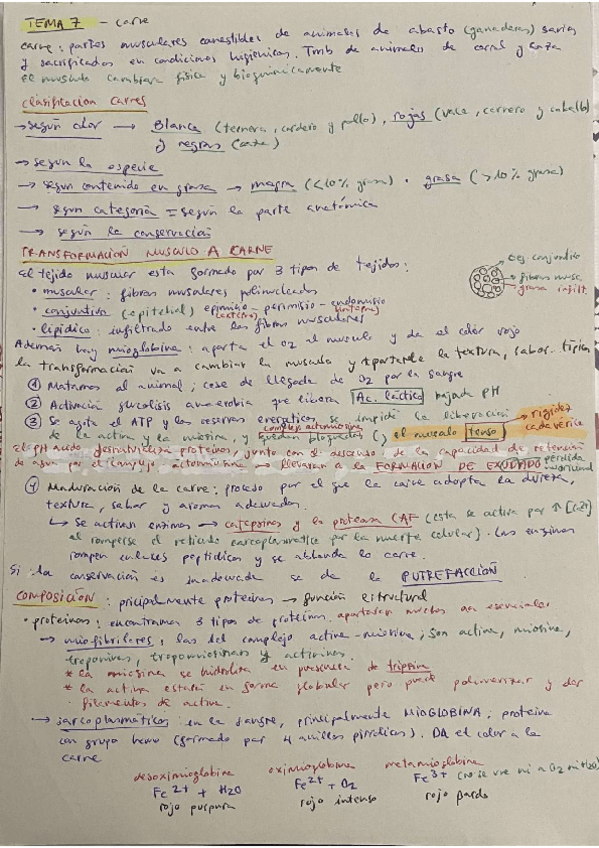 TEMA 7 - carne
carne: partes musculares comestibles de animales de abasto (ganaderas) sanos
y sacrificados en condiciones higienicas. Tmb de animales de corral y caza
el musculo cambiara fisica y bioquimicamente
Clasificacion carnes
→ según color → Blanca (ternera, cordero y pollo), rojas (vaca, carnero y caballo)
y negras (caza)
→ según la especie
→ según contenido en grasa → magra (<10% grasa) · grasa (>10% grasa)
→ según categoria = según la parte anatómica
→ según la conservación
TRANSFORMACIÓN MUSCULO A CARNE
el tejido muscular esta formado por 3 tipos de tejidos:
tej. conjuntivo
fibras musc.
grasa infilt.
• muscular: fibras musculares polinucleadas
• conjuntivo (epitelial) epimisio - perimisio - endomisio
(externo) (interno)
• lipidico: infiltrado entre las fibras musculares
Ademas hay mioglobina: aporta el O2 al musculo y da el color rojo
la transformación va a cambiar la musculo y aportarle la textura, sabor típica
① Matamos al animal; cese de llegada de O2 por la sangre
② Activación glucolisis anaerobia que libera Ac. láctico bajada pH
③ Se agota el ATP y las reservas energeticas, se impide la liberación → rigidez cadavérica
complejo actomiosina
de la actina y la miosina, y quedan bloqueadas (, el musculo tenso)
El pH acido desnaturaliza proteinas, junto con el descenso de la capacidad de retención
de agua por el complejo actomiosina → llevaran a la FORMACIÓN DE EXUDADO → pérdida nutricional
④ Maduración de la carne: proceso por el que la carne adopta la dureza,
textura, sabor y aromas adecuados.
↳ Se activan enzimas → catepsinas y la proteasa CAF (esta se activa por ↑ [Ca2+]
al romperse el reticulo sarcoplasmatico por la muerte celular). Las enzimas
rompen enlaces peptidicos y se ablanda la carne.
Si la conservación es inadecuada se da la PUTREFACCIÓN
COMPOSICIÓN: pricipalmente proteinas → función estructural
• proteinas: encontramos 3 tipos de proteinas. aportaran muchos aa esenciales
→ miofibrilares: las del complejo actina-miosina; son actina, miosina,
troponinas, tropomiosinas y actininas.
* la miosina se hidroliza en presencia de tripsina
* la actina estará en forma globular pero puede polimerizar y dar
filamentos de actina.
→ sarcoplasmáticas: en la sangre, principalmente MIOGLOBINA: proteina
con grupo hemo (formado por 4 anillos pirrolicos). DA el color a la
carne
desoximioglobina oximioglobina metamioglobina
Fe2+ + H2O Fe2+ + O2 Fe3+ (no se une ni a O2 ni H2O)
rojo purpura rojo intenso rojo pardo